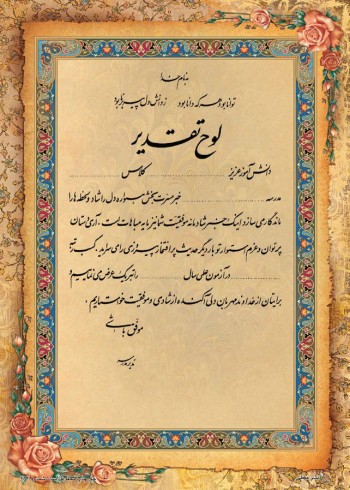 بنام خدا
توانا بود هر که دانا بود ز دانش دل پیر برنا بود
لوح تقدیر
دانش آموز عزیز کلاس
مدرسه خبر مسرت بخش همواره دل را شاد و لحظه ها را
ماندگار می سازد اینک خبر شادمانه موفقیت شما نیز مایه مباهات است. آری دستان
پر توان و عزم استوار تو بار دیگر حدیث پر افتخار پیروزی را می سراید. کسب رتبه
در آزمون علمی سال را تبریک عرض می نماییم و
برایتان از خداوند مهربان دلی آکنده از شادی و موفقیت خواستاریم.
موفق باشی
مدیر مدرسه